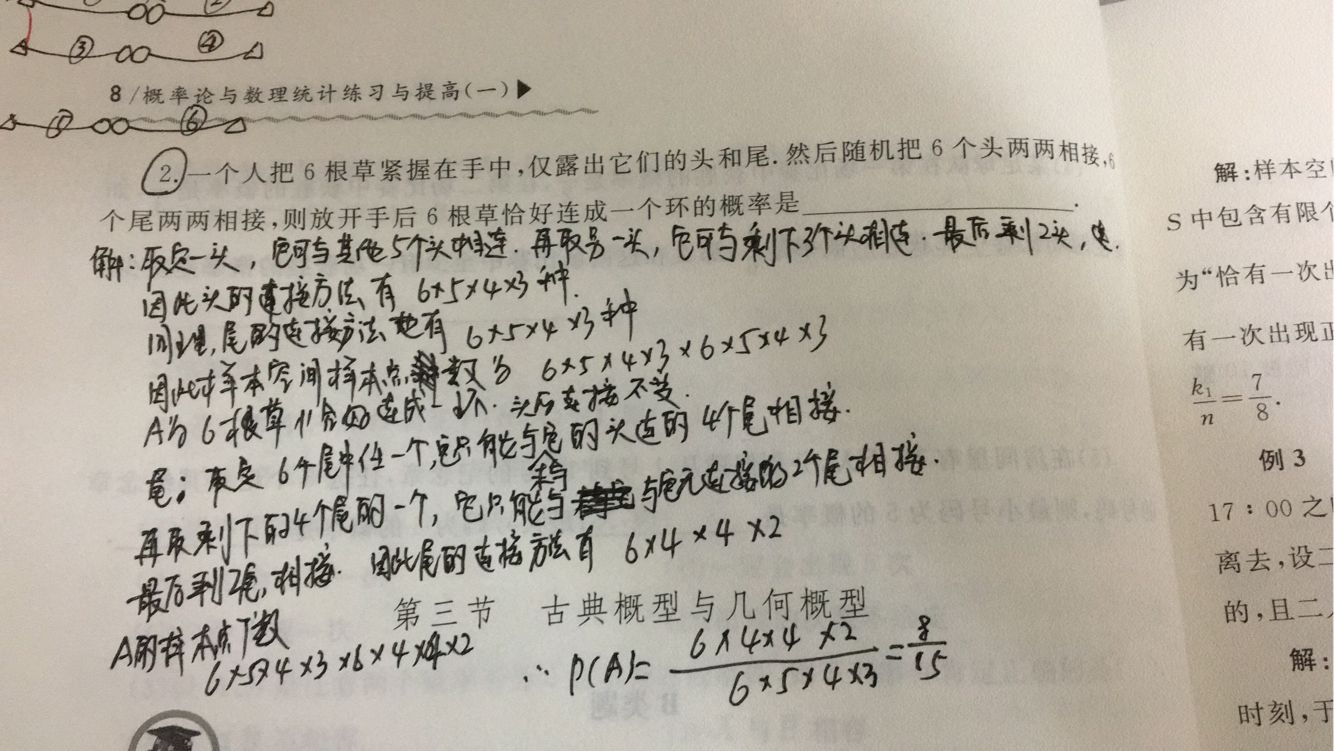 ② ③ ④
8/概率论与数理统计练习与提高(一)▶
⑤ ⑥
2.一个人把6根草紧握在手中,仅露出它们的头和尾.然后随机把6个头两两相接,6
个尾两两相接,则放开手后6根草恰好连成一个环的概率是________.
解:取定一头,它可与其他5个头相连.再取另一头,它可与剩下3个头相连.最后剩2头,连.
因此头的连接方法有 6×5×4×3种.
同理,尾的连接方法也有 6×5×4×3种
因此样本空间样本点数为 6×5×4×3×6×5×4×3
A为6根草恰好连成一环.头后连接不变.
尾:取定6个尾中任一个,它只能与它的头连的4个尾相接.
再取剩下的4个尾的一个,它只能与未与它元连接的2个尾相接.
最后剩2尾,相接.因此尾的连接方法有 6×4×4×2
第三节 古典概型与几何概型
A的样本点个数
6×5×4×3×6×4×4×2 ∴P(A)=6×4×4×2/6×5×4×3=8/15
解:样本空
S中包含有限个
为“恰有一次出
有一次出现正
k₁/n=7/8.
例3
17:00之
离去,设二
的,且二
解:
时刻,于